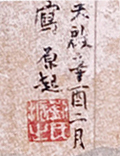 天啟辛酉二月
寫 原起